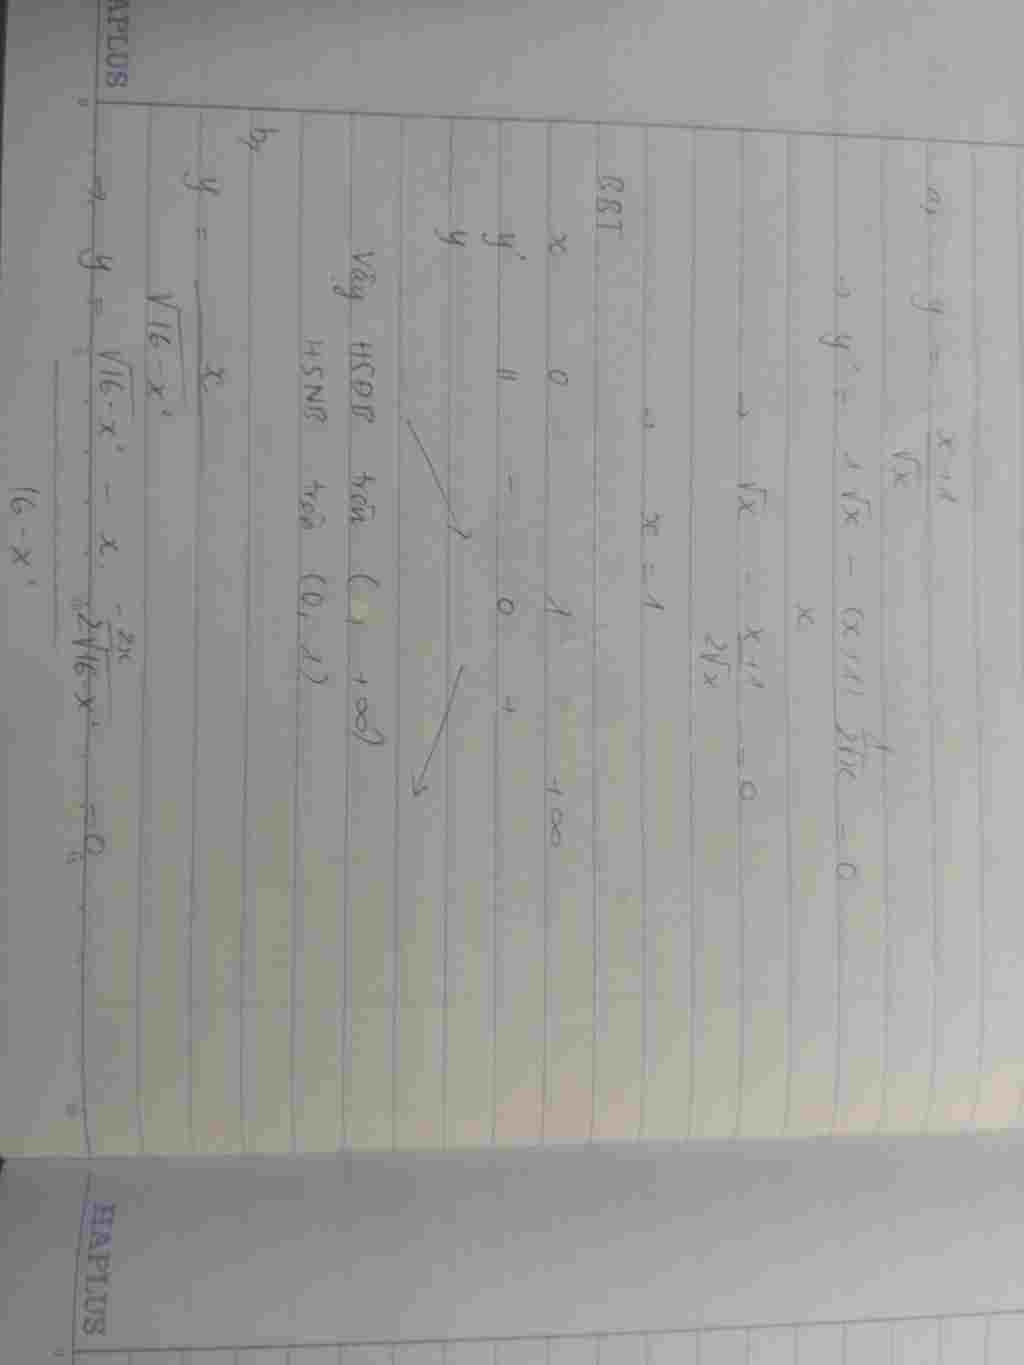 HAPLUS
a, y = x+1 / √x
→ y' = 1√x - (x+1) 1/2√x / x = 0
→ √x - x+1 / 2√x = 0
→ x = 1
BBT
x 0 1 +∞
y' || - 0 +
y
Vậy HSĐB trên ( , +∞)
HSNB trên (0, 1)
b,
y = x / √16-x²
→ y = √16-x² - x. -2x / 2√16-x² / 16-x² = 0
HAPLUS